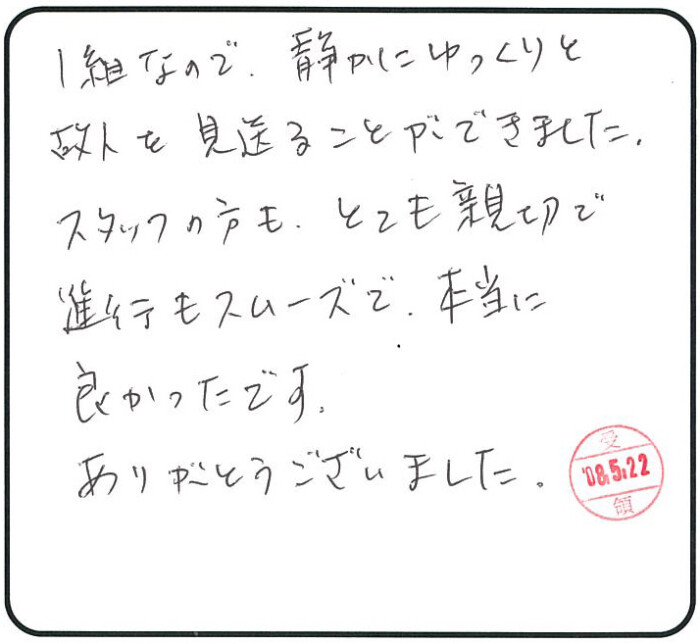 1組なので、静かにゆっくりと
故人を見送ることができました。
スタッフの方も、とても親切で
進行もスムーズで、本当に
良かったです。
ありがとうございました。
受
'08.5.22
領